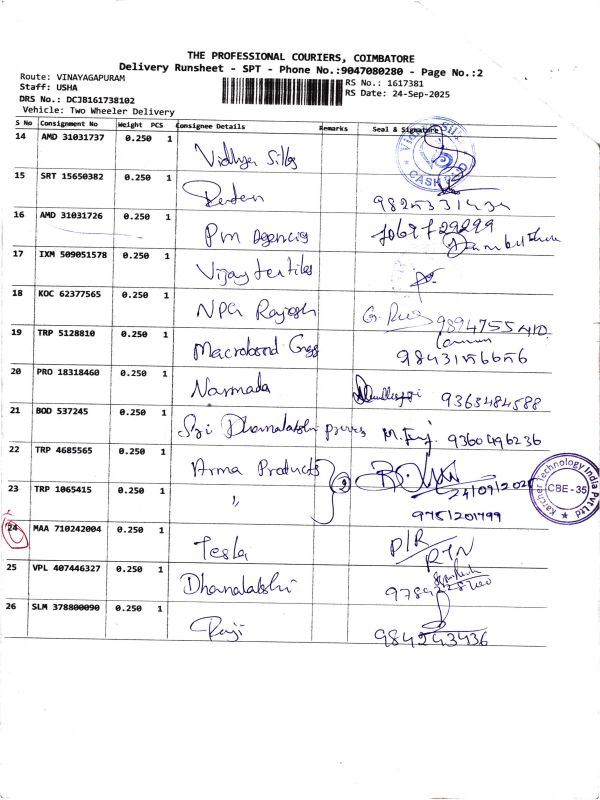 THE PROFESSIONAL COURIERS, COIMBATORE
Delivery Runsheet - SPT - Phone No.:9047080280 - Page No.:2
Route: VINAYAGAPURAM
RS No.: 1617381
Staff: USHA
RS Date: 24-Sep-2025
DRS No.: DCJB161738102
Vehicle: Two Wheeler Delivery
S No Consignment No Weight PCS Consignee Details Remarks Seal & Signature
14 AMD 31031737 0.250 1
Vidhya Silks
CASH
15 SRT 15650382 0.250 1
16 AMD 31031726 0.250 1
Pm Agencies
17 IXM 509051578 0.250 1
Vijay textiles
18 KOC 62377565 0.250 1
NPG Rajesh
19 TRP 5128810 0.250 1
Macrobond
9843156656
20 PRO 18318460 0.250 1
Narmada 9363484588
21 BOD 537245 0.250 1
Sri Dhanalakshi 9360496236
22 TRP 4685565 0.250 1
Arma Products
24/09/202
Karcher Technology India Pvt Ltd
CBE-35
23 TRP 1065415 0.250 1
"
9751201799
24 MAA 710242004 0.250 1
Tesla
P/R
RTN
25 VPL 407446327 0.250 1
Dhanalakshi
26 SLM 378800090 0.250 1
Raji
9842243436